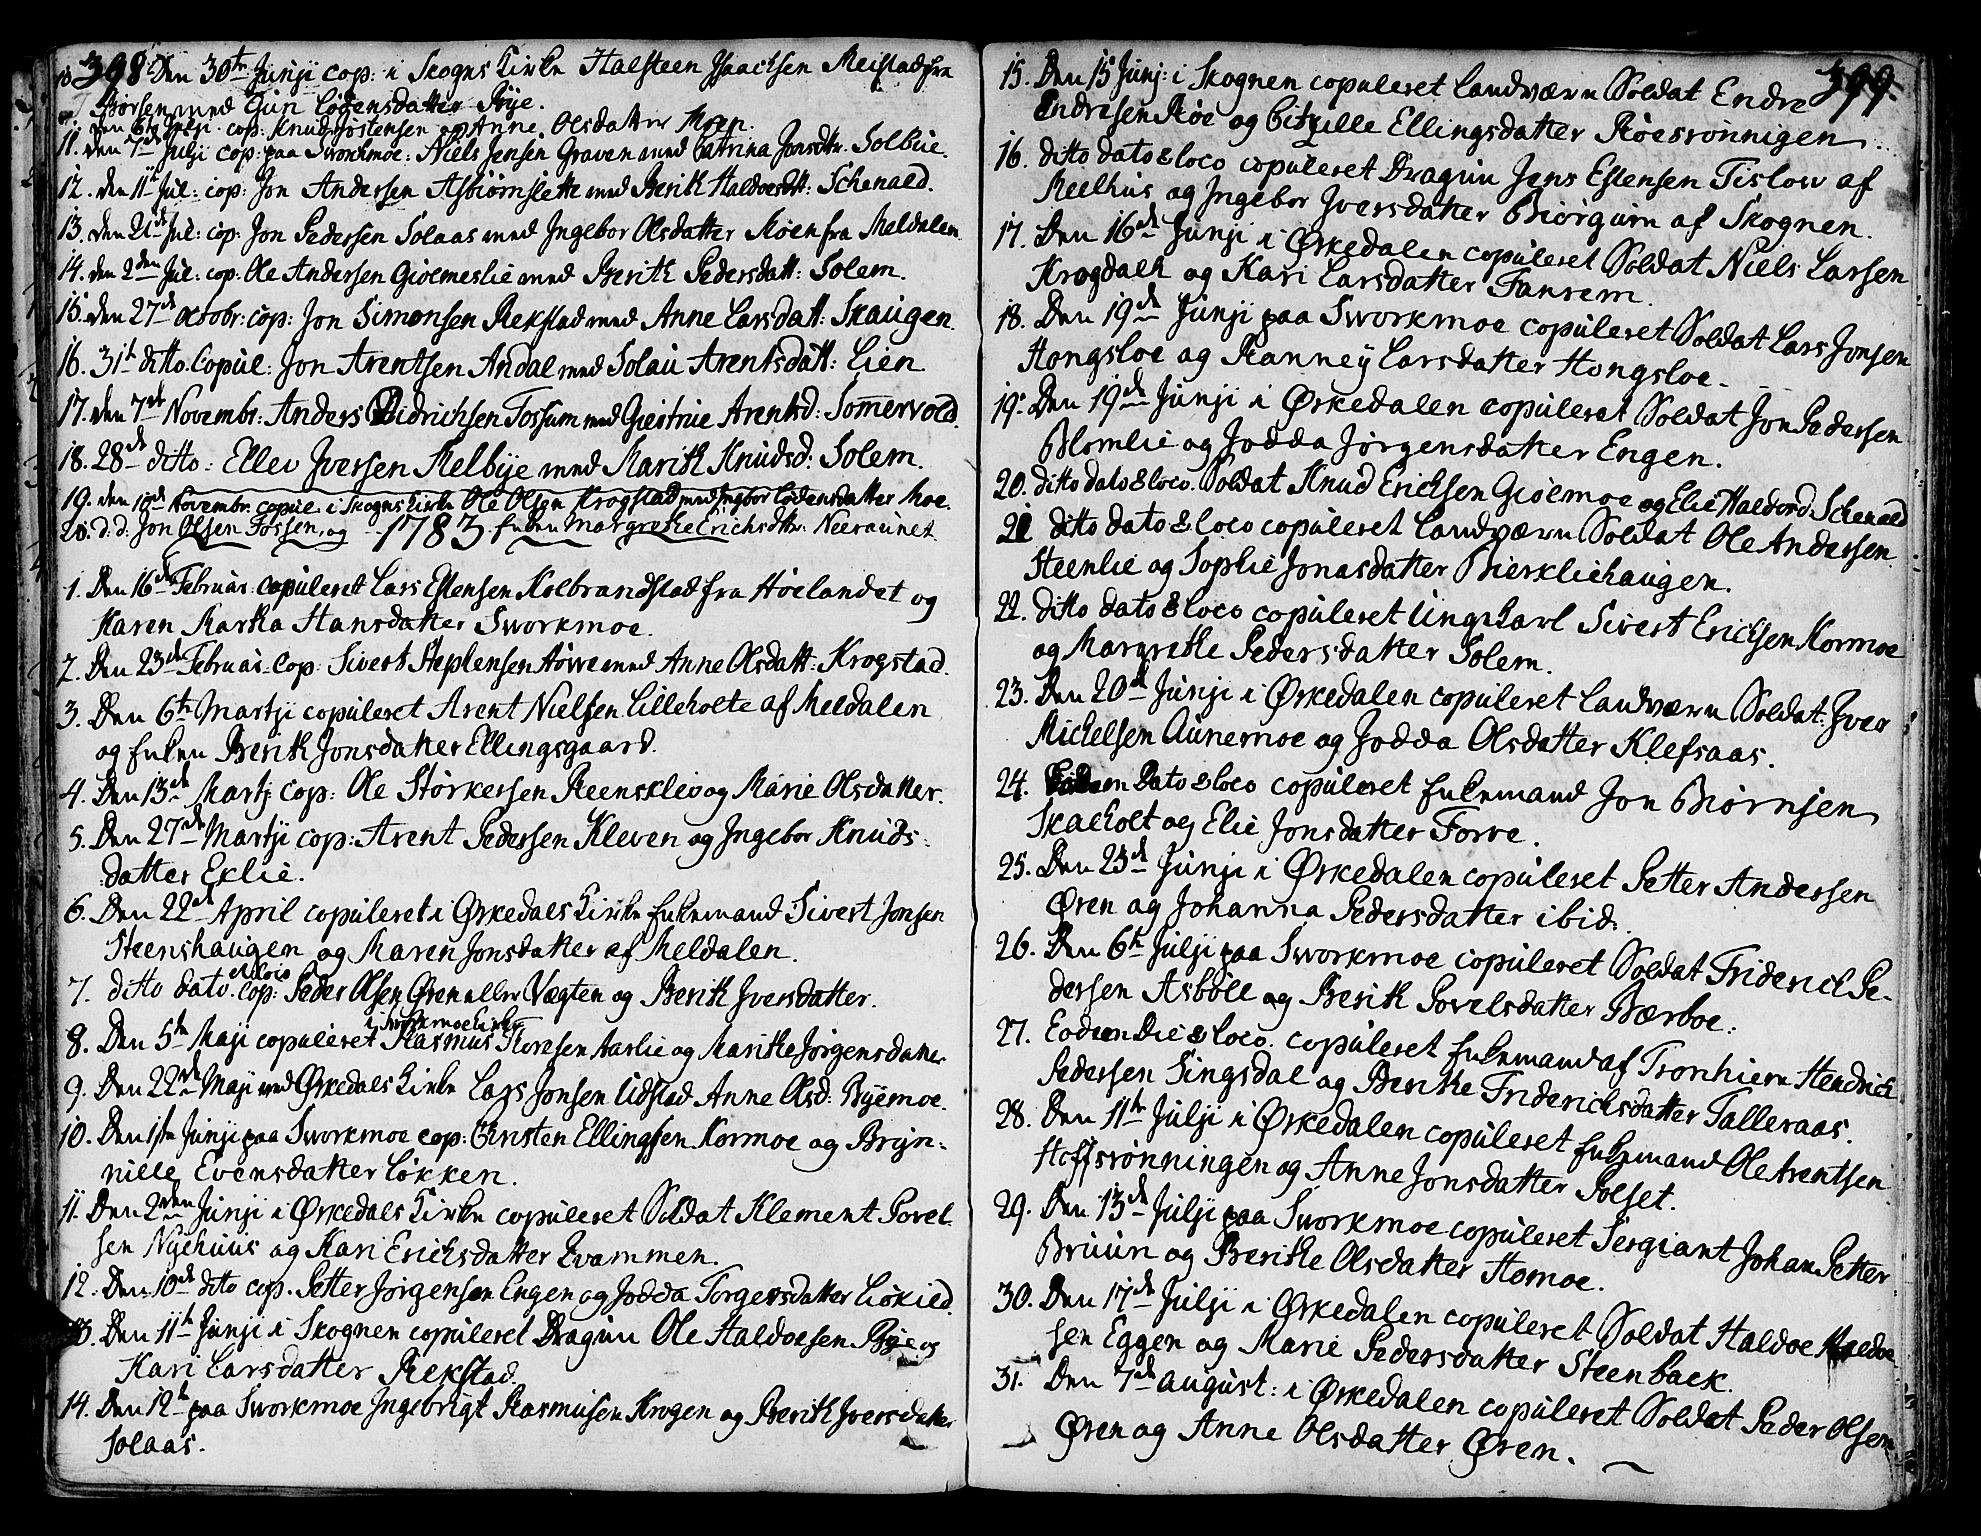 398. Den 30te Junji cop: i Skogns Kirke Halsteen Isachsen Meistad fra
Børsen med Gun Lodensdatter Bye.
den 6te Julji cop: Knud Jostensen og Anne Olsdatter Moen.
11. den 7de Julji cop: paa Sworkmoe: Niels Jensen Graven med Catrina Jonsdttr. Solbue.
12. den 11te Jul: cop: Jon Andersen Asbiørnslette med Berith Haldorsdtt: Schenald.
13. den 21de Jul: cop: Jon Pedersen Solaas med Ingebor Olsdatter Moen fra Meldalen.
14. den 2den Jul: cop: Ole Andersen Gioemeslie med Berith Pedersdatt: Solem.
15. den 27de octobr: cop: Jon Simonsen Rekstad med Anne Larsdatt: Skaugen.
16. 31te ditto. Copul: Jon Arentsen Andal med Solau Arentsdatt: Lien
17. den 7de Novembr: Anders Didrichsen Fossum med Giertrue Arentsd: Sommervold.
18. 28de ditto: Ellev Iversen Melbye med Marith Knudsd: Solem.
19. den 10de Novembr: copul: i Skogns Kirke Ole Olsen Krogstad med Ingbor Lodensdatter Moe.
20. d: d: Jon Olsen Fossen, og Enken Margrethe Erichsdttr: Neeraunet
1783
1. Den 16de Februar. copuleret Lars Estensen Kolbrandstad fra Høelandet og
Karen Marka Hansdatter Sworkmoe.
2. Den 23de Februar. Cop: Sivert Stephensen Howe med Anne Olsdatt: Krogstad.
3. Den 6te Martji copuleret Arent Nielsen Lilleholte af Meldalen
og Enken Berith Jonsdatter Ellingsgaard.
4. Den 13de Martj cop: Ole Størkersen Reensklev og Marie Olsdatter.
5. Den 27de Martji cop: Arent Pedersen Kleven og Ingebor Knuds-
datter Eklie.
6. Den 22de April copuleret i Ørkedals Kirke Enkemand Sivert Jonsen
Steenshaugen og Maren Jonsdatter af Meldalen.
7. ditto dato et loco cop: Peder Olsen Øren eller Vægten og Berith Iversdatter.
8. Den 5te Maji copuleret i Sworkmoe Kirke Rasmus Toresen Aarlie og Marithe Jørgensdatter
9. Den 22de Maji ved Ørkedals Kirke Lars Jonsen Udstad Anne Olsd: Byemoe.
10. Den 1ste Junji paa Sworkmoe cop: Christen Ellingsen Kormoe og Bryn-
nille Evensdatter Løkken.
11. Den 2den Junji i Ørkedals Kirke copuleret Soldat Klement Povel-
sen Nyehuus og Kari Erichsdatter Evammen.
12. Den 10de ditto cop. Petter Jørgensen Engen og Jodda Torgersdatter Liøkied.
13. Den 11te Junji i Skognen copuleret Dragun Ole Haldorsen Bye og
Kari Larsdatter Rekstad.
14. Den 12te paa Sworkmoe Ingebrigt Rasmusen Krogen og Berith Iversdatter
Solaas.
399.
15. Den 15 Junj: i Skognen copuleret Landværn Soldat Endre
Endresen Moe og Citzille Ellingsdatter Moesrønnigen.
16. ditto dato & loco copuleret Dragun Jens Estensen Tislow af
Meelhus og Ingebor Iversdatter Biørgum af Skognen.
17. Den 16de Junji i Ørkedalen copuleret Soldat Niels Larsen
Krogdalh og Kari Larsdatter Fanrem.
18. Den 19de Junji paa Sworkmoe copuleret Soldat Lars Jonsen
Hongsloe og Ranney Larsdatter Hongsloe.
19. Den 19de Junji i Ørkedalen copuleret Soldat Jon Pedersen
Blomlie og Jodda Jørgensdatter Engen.
20. ditto dato & loco. Soldat Knud Erichsen Gioemoe og Elie Haldord. Schenald
21 ditto dato & loco copuleret Landværn Soldat Ole Andersen
Steenlie og Sophie Jonasdatter Bierkliehaugen.
22. ditto dato & loco copuleret Ungkarl Sivert Erichsen Kormoe
og Margrethe Pedersdatter Solem.
23. Den 20de Junji i Ørkedalen copuleret Landværn Soldat Iver
Michelsen Aunemoe og Jodda Olsdatter Klefsaas.
24. Eodem Dato & loco copuleret Enkemand Jon Biørnsen
Skaeholt og Elie Jonsdatter Forve.
25. Den 23de Junji i Ørkedalen copuleret Petter Andersen
Øren og Johanna Pedersdatter ibid.
26. Den 6te Julji paa Sworkmoe copuleret Soldat Friderich Pe-
dersen Asbøll og Berith Povelsdatter Bærboe.
27. Eodem Die & loco. copuleret Enkemand af Tronhiem Hendrich
Pedersen Singsdal og Berithe Friderichsdatter Talleraas.
28. Den 11te Julji i Ørkedalen copuleret Enkemand Ole Arentsen
Hoffsrønningen og Anne Jonsdatter Solset.
29. Den 13de Julji paa Sworkmoe copuleret Sergiant Johan Petter
Bruun og Berithe Olsdatter Homoe.
30. Den 17de Julji i Ørkedalen copuleret Soldat Haldoe Haldoe
sen Eggen og Marie Pedersdatter Steenbaek.
31. Den 7de august: i Ørkedalen copuleret Soldat Peder Olsen
Øren og Anne Olsdatter Øren.